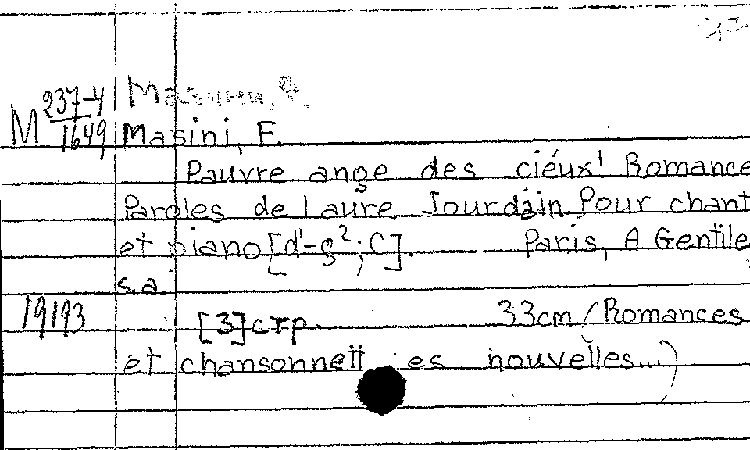 M 237-4/1649
Masini, F.
Pauvre ange des cieux! Romance
Paroles de Laure Jourdain Pour chant
et piano [d¹-g²; C]. Paris, A Gentile
s.a.
19193 [3] стр. 33cm (Romances
et chansonnett es nouvelles...)